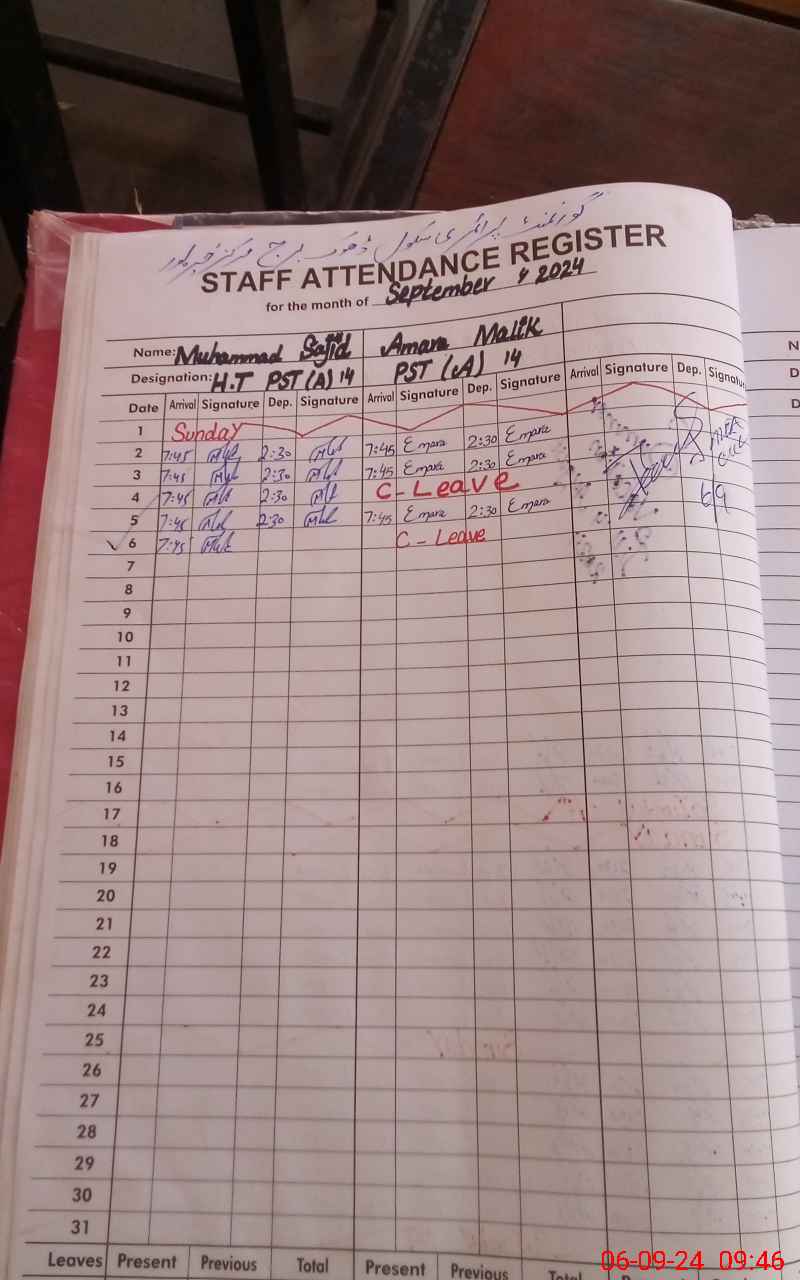 گورنمنٹ پرائمری سکول ڈھوک برج مرکز
STAFF ATTENDANCE REGISTER
for the month of September, 2024
Name: Muhammad Sajid Amara Malik
Designation: H.T PST (A) 14 PST (A) 14
Date Arrival Signature Dep. Signature Arrival Signature Dep. Signature Arrival Signature Dep. Signatur
1 Sunday
2 7:45 2:30 7:45 Emara 2:30 Emara
3 7:45 2:30 7:45 Emara 2:30 Emara
4 7:45 2:30 C-Leave
5 7:45 2:30 7:45 Emara 2:30 Emara
6 7:45 C-Leave
6/9
7
8
9
10
11
12
13
14
15
16
17
18
19
20
21
22
23
24
25
26
27
28
29
30
31
Leaves Present Previous Total Present Previous Total
06-09-24 09:46